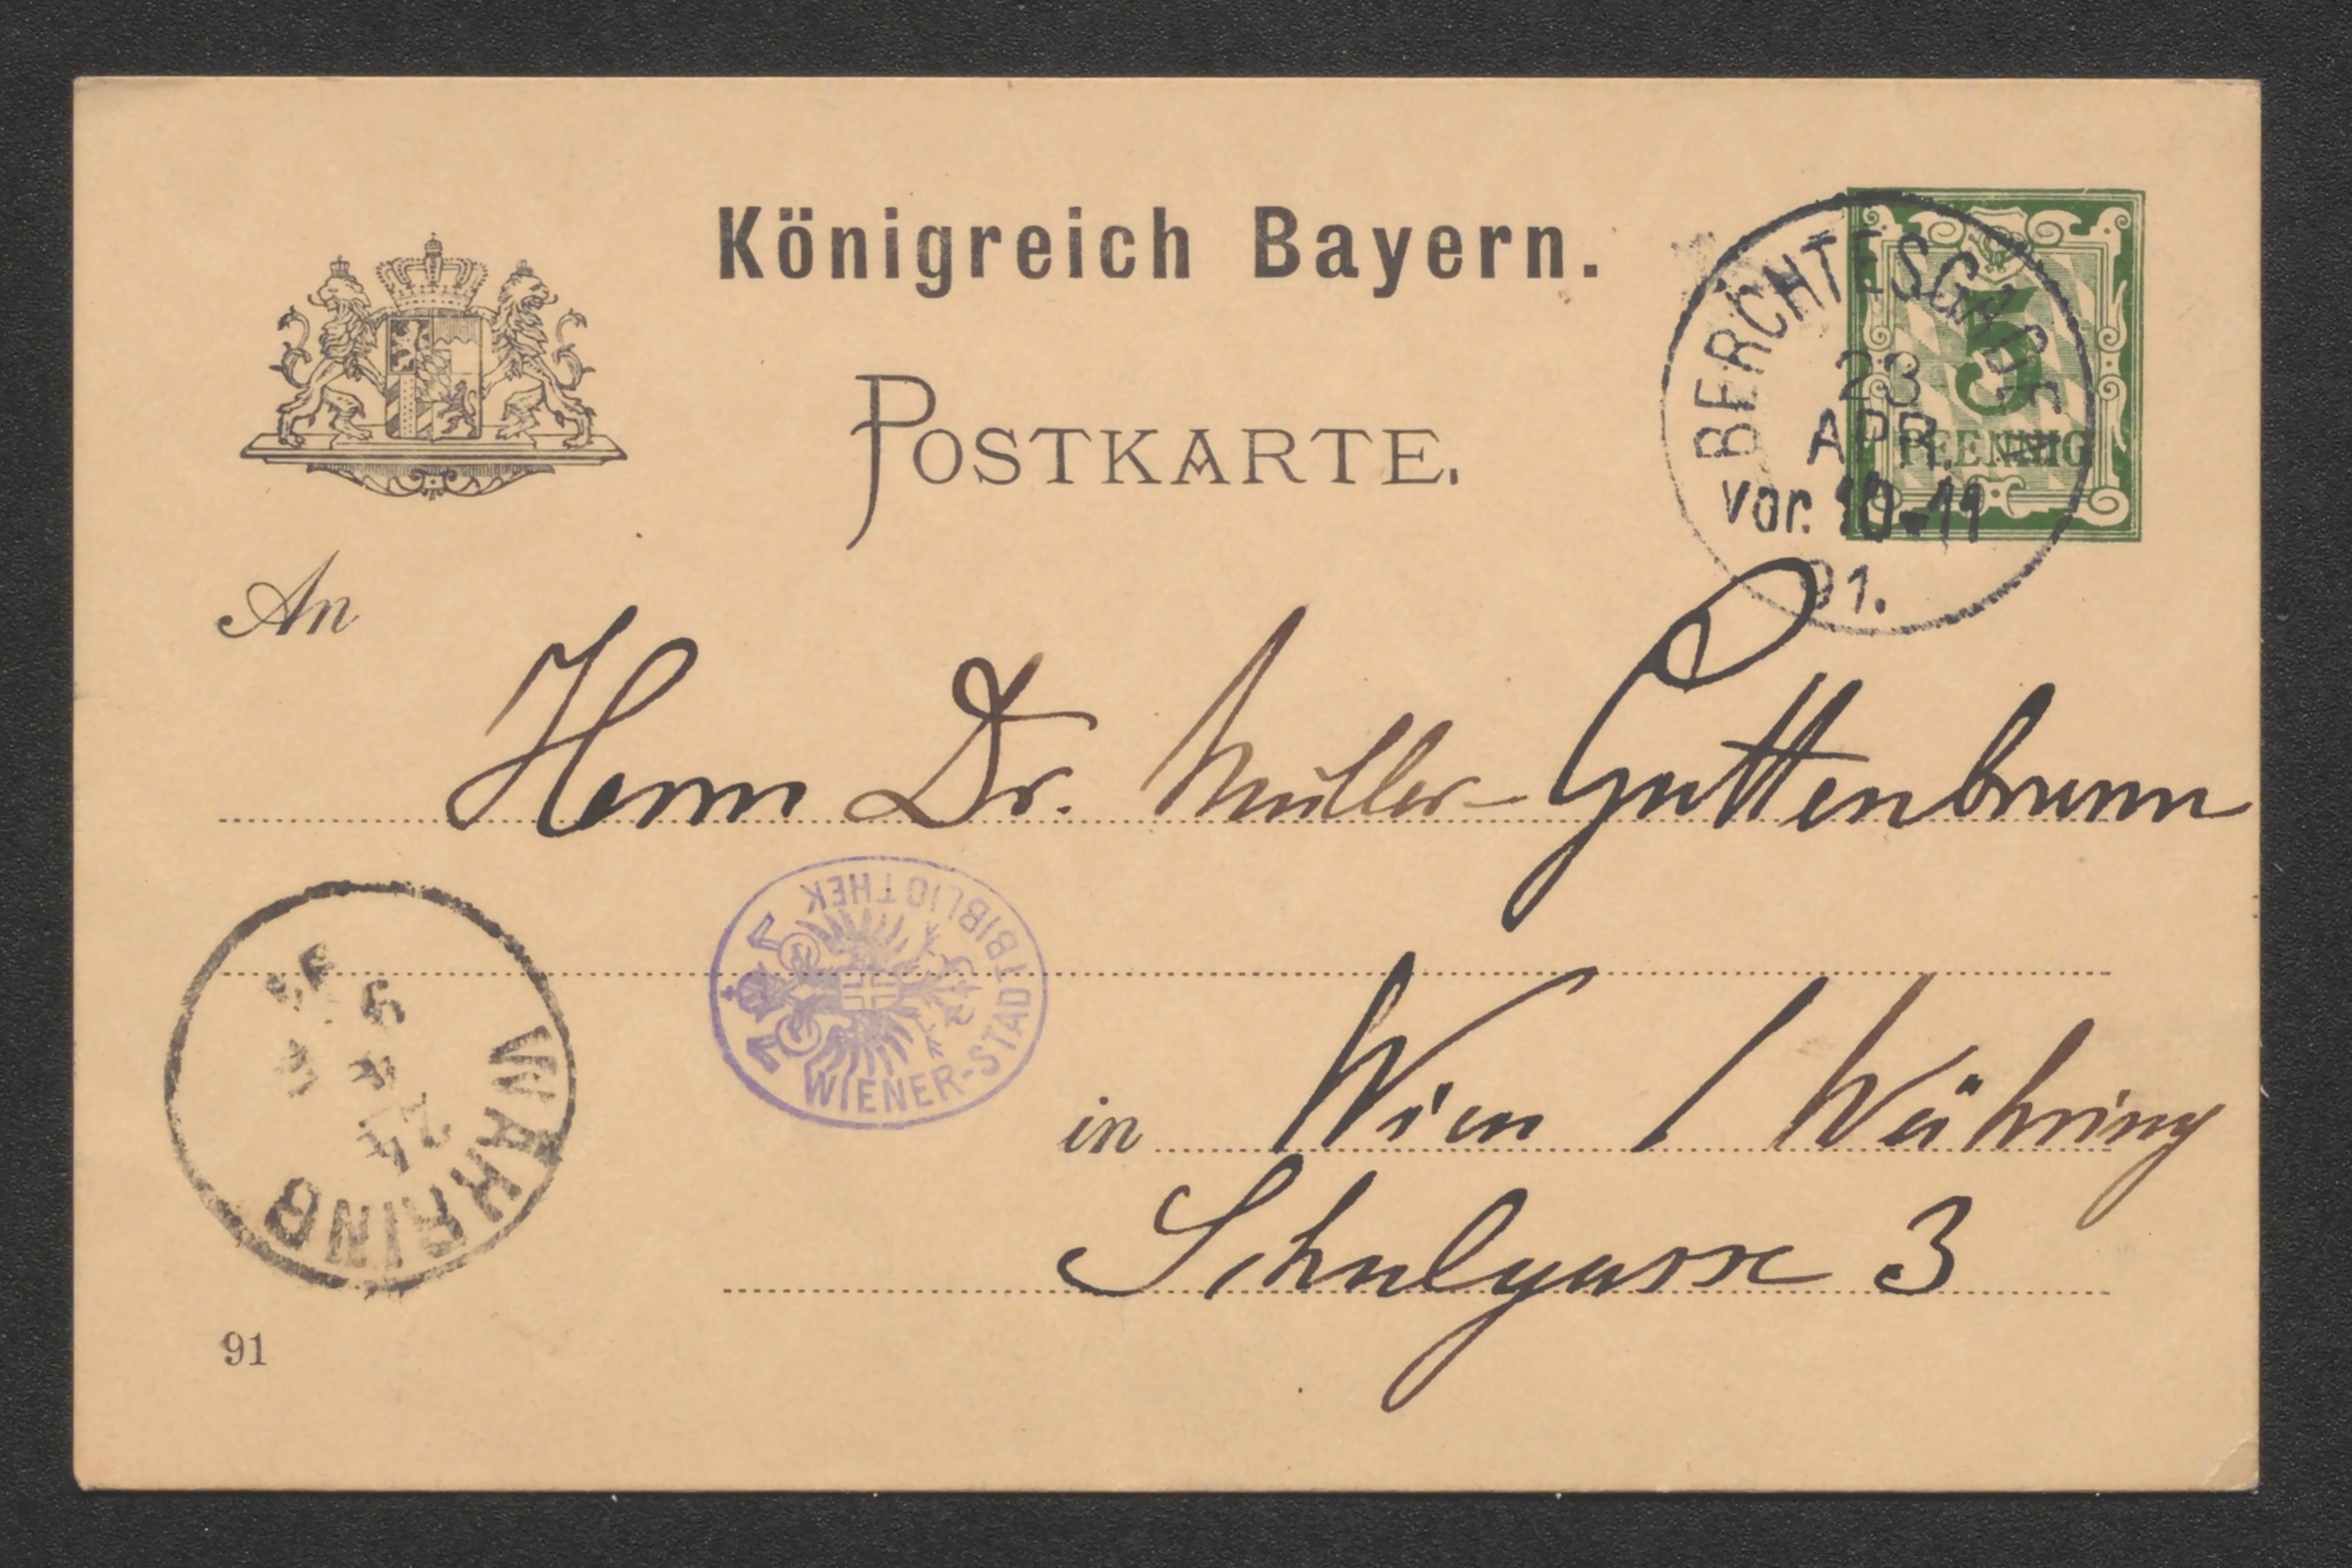 Königreich Bayern.
POSTKARTE.
BERCHTESGADEN
23
APR.
5
PFENNIG
Vor. 10-11
91.
An
Herrn Dr. Müller-Guttenbrunn
WIENER-STADTBIBLIOTHEK
in Wien / Währing
Schulgasse 3
WÄHRING
24
91